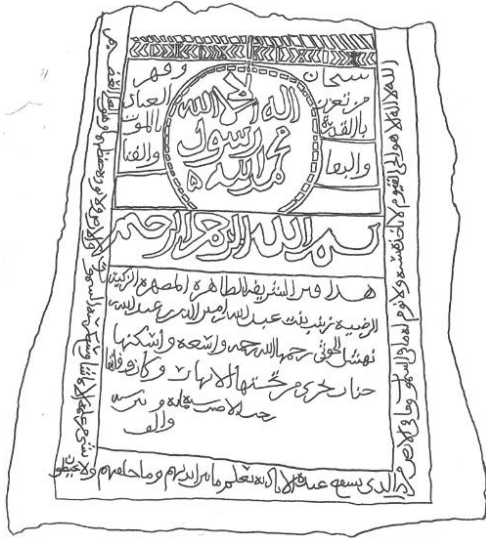 سبحان
من تعزز
بالقدرة
والبقا
وقهر
العباد
بالموت
والفنا
لا اله الا الله
محمد رسول
الله
بسم الله الرحمن الرحيم
هذا قبر الشريفة الطاهرة المطهرة الزكية
الرضية زينب بنت عبدالله امير الدين عبدالله
نهشل الحوثي رحمها الله رحمة واسعة واسكنها
جنات تجري من تحتها الانهار وكان وفاتها
والف
الله لا اله الا هو الحي القيوم لا تاخذه سنة ولا نوم له ما في السموات وما في الارض من
ذا الذي يشفع عنده الا باذنه يعلم ما بين ايديهم وما خلفهم ولا يحيطون
بشي من علمه الا بما شا وسع كرسيه السموات والارض ولا يوده حفظهما وهو العلي العظيم